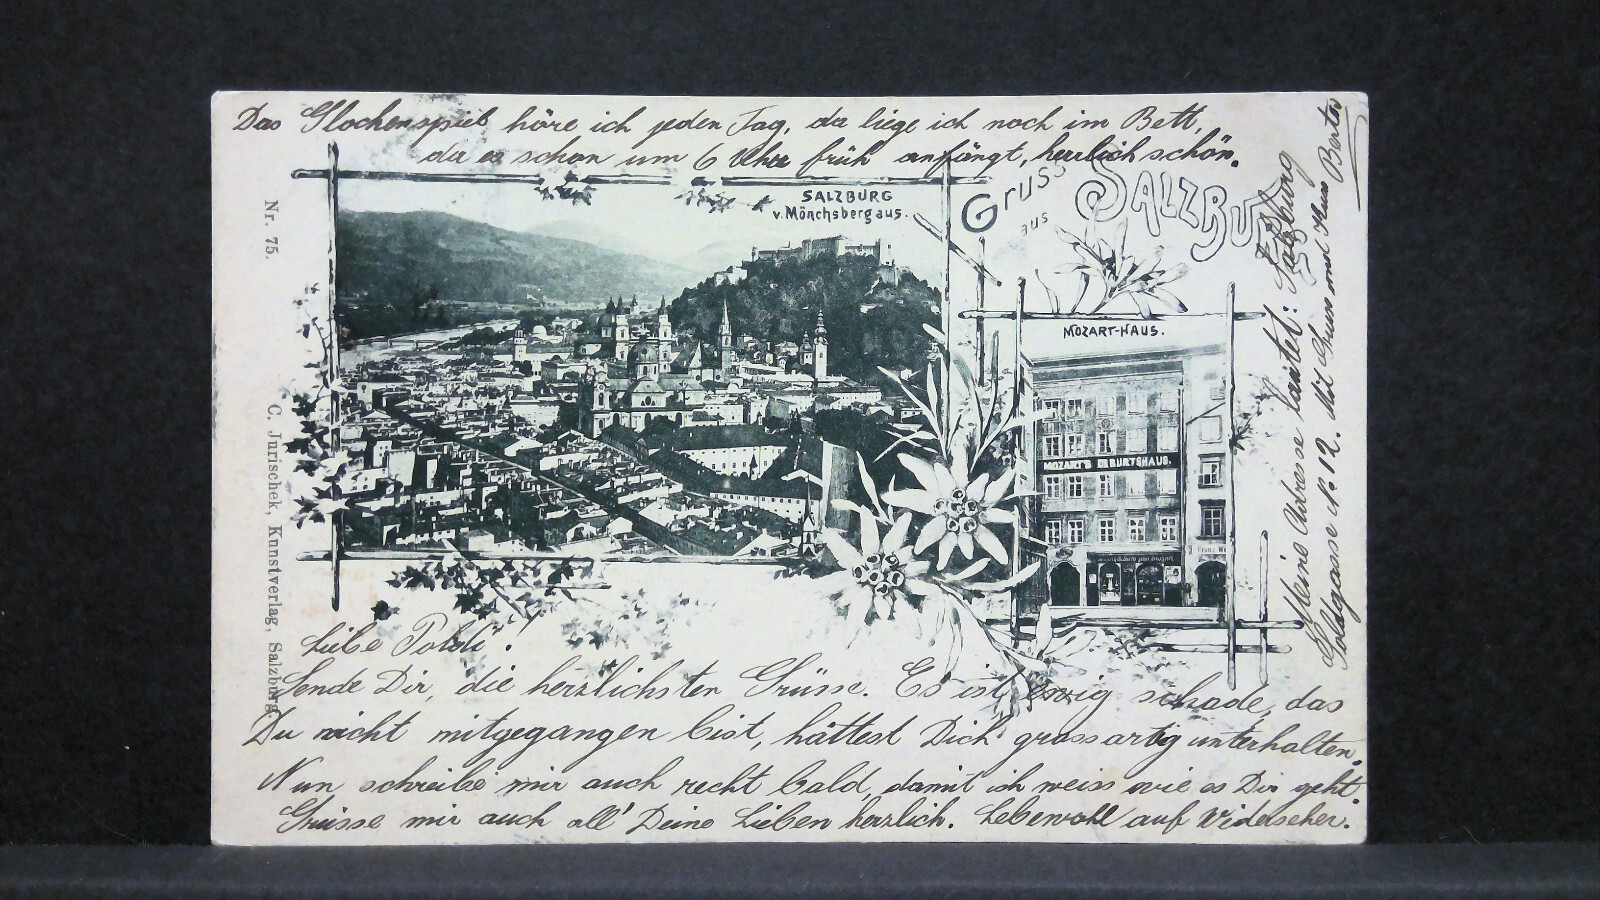 Das Glockenspiel höre ich jeden Tag, da liege ich noch im Bett,
da es schon um 6 Uhr früh anfängt, herrlich schön.
SALZBURG
v. Mönchsberg aus.
Gruss
aus
SALZBURG
MOZART-HAUS.
MOZART'S GEBURTSHAUS.
Nr. 75.
C. Jurischek, Kunstverlag, Salzburg.
Liebe Poldi!
Sende Dir, die herzlichsten Grüsse. Es ist ewig schade, das
Du nicht mitgegangen bist, hättest Dich grossartig unterhalten.
Nun schreibe mir auch recht bald, damit ich weiss wie es Dir geht.
Grüsse mir auch all' Deine Lieben herzlich. Lebewohl auf Widersehen.
Meine Adresse lautet: Salzburg
N° 12. Mit Gruss und Kuss